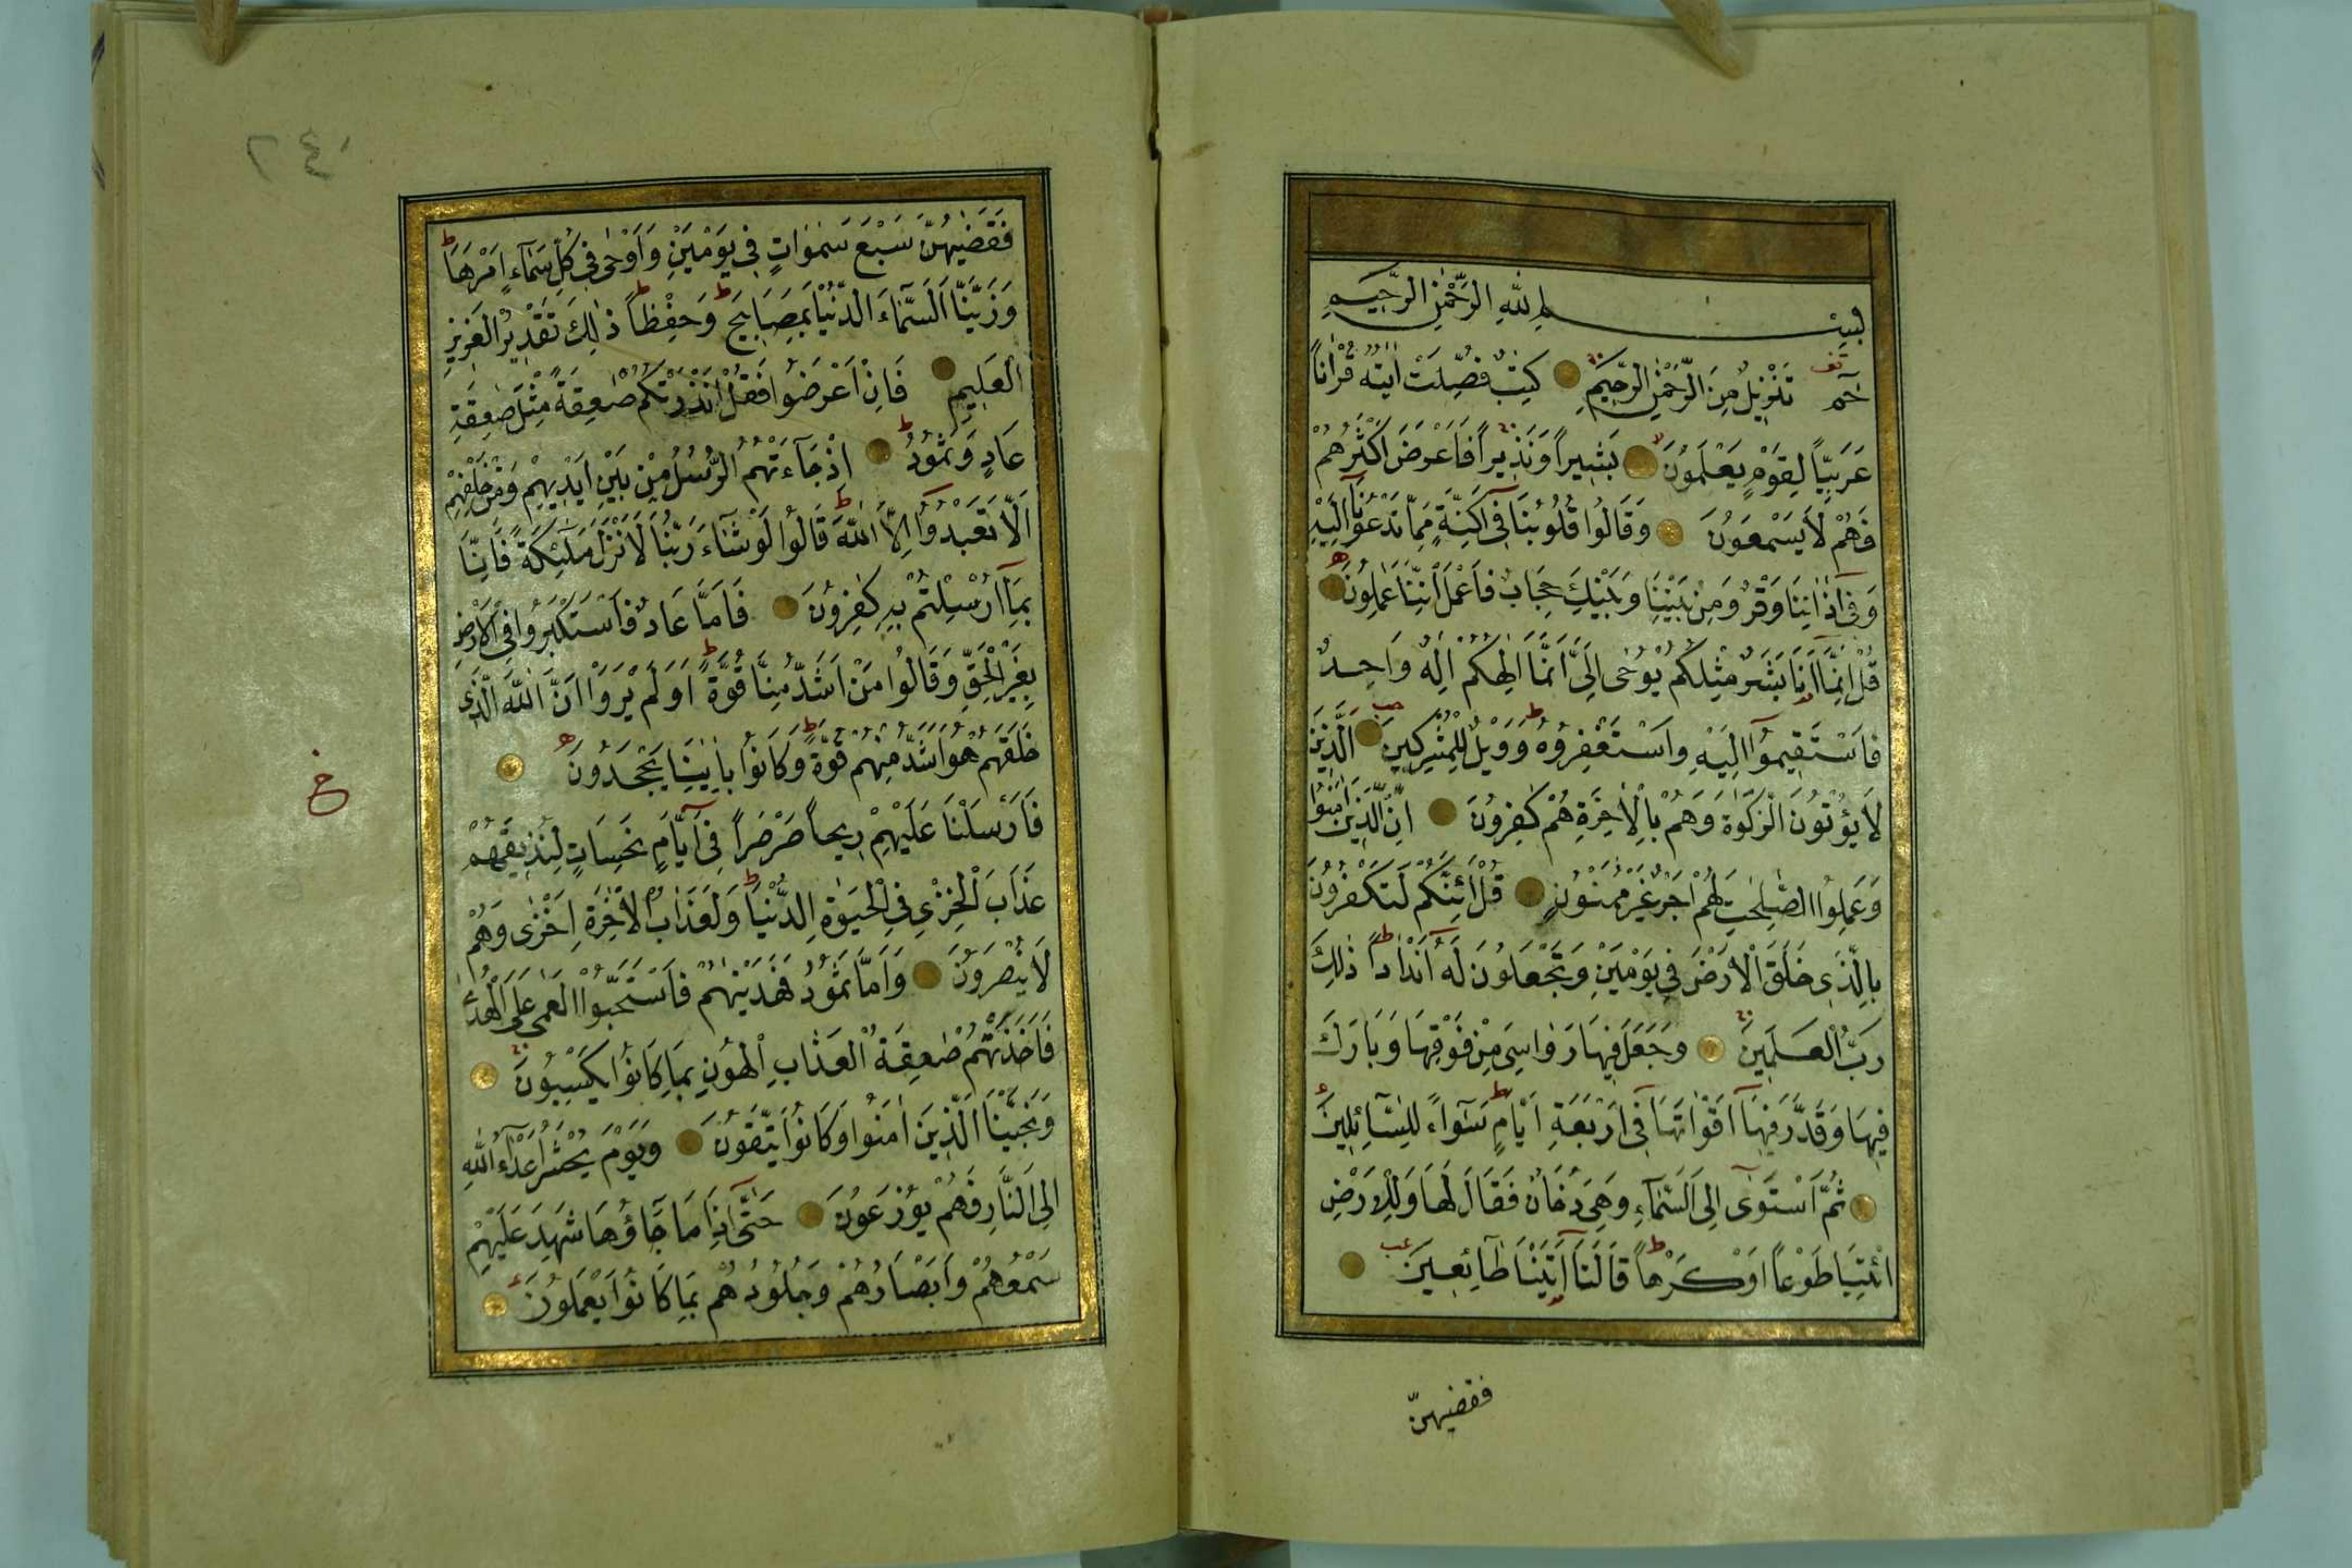 بِسْمِ اللّٰهِ الرَّحْمٰنِ الرَّحِيمِ
تف
حٰمٓ تَنْزِيلٌ مِنَ الرَّحْمٰنِ الرَّحِيمِ كِتَابٌ فُصِّلَتْ اٰيٰتُهُ قُرْاٰناً
عَرَبِيّاً لِقَوْمٍ يَعْلَمُونَ بَشِيراً وَنَذِيراً فَاَعْرَضَ اَكْثَرُهُمْ
فَهُمْ لَا يَسْمَعُونَ وَقَالُوا قُلُوبُنَا فِى اَكِنَّةٍ مِمَّا تَدْعُونَا اِلَيْهِ
وَفِى اٰذَانِنَا وَقْرٌ وَمِنْ بَيْنِنَا وَبَيْنِكَ حِجَابٌ فَاعْمَلْ اِنَّنَا عَامِلُونَ
قُلْ اِنَّمَا اَنَا بَشَرٌ مِثْلُكُمْ يُوحٰى اِلَىَّ اَنَّمَا اِلٰهُكُمْ اِلٰهٌ وَاحِدٌ
فَاسْتَقِيمُوا اِلَيْهِ وَاسْتَغْفِرُوهُ وَوَيْلٌ لِلْمُشْرِكِينَ الَّذِينَ
لَا يُؤْتُونَ الزَّكٰوةَ وَهُمْ بِالْاٰخِرَةِ هُمْ كٰفِرُونَ اِنَّ الَّذِينَ اٰمَنُوا
وَعَمِلُوا الصّٰلِحٰتِ لَهُمْ اَجْرٌ غَيْرُ مَمْنُونٍ قُلْ اَئِنَّكُمْ لَتَكْفُرُونَ
بِالَّذِى خَلَقَ الْاَرْضَ فِى يَوْمَيْنِ وَتَجْعَلُونَ لَهُ اَنْدَاداً ذٰلِكَ
رَبُّ الْعٰلَمِينَ وَجَعَلَ فِيهَا رَوَاسِىَ مِنْ فَوْقِهَا وَبَارَكَ
فِيهَا وَقَدَّرَ فِيهَا اَقْوَاتَهَا فِى اَرْبَعَةِ اَيَّامٍ سَوَاءً لِلسَّائِلِينَ
ثُمَّ اسْتَوٰى اِلَى السَّمَاءِ وَهِىَ دُخَانٌ فَقَالَ لَهَا وَلِلْاَرْضِ
ائْتِيَا طَوْعاً اَوْ كَرْهاً قَالَتَا اَتَيْنَا طَائِعِينَ
فقضيهنّ
٢٤٠
فَقَضٰيهُنَّ سَبْعَ سَمٰوَاتٍ فِى يَوْمَيْنِ وَاَوْحٰى فِى كُلِّ سَمَاءٍ اَمْرَهَا
وَزَيَّنَّا السَّمَاءَ الدُّنْيَا بِمَصَابِيحَ وَحِفْظاً ذٰلِكَ تَقْدِيرُ الْعَزِيزِ
الْعَلِيمِ فَاِنْ اَعْرَضُوا فَقُلْ اَنْذَرْتُكُمْ صٰعِقَةً مِثْلَ صٰعِقَةِ
عَادٍ وَثَمُودَ اِذْ جَاءَتْهُمُ الرُّسُلُ مِنْ بَيْنِ اَيْدِيهِمْ وَمِنْ خَلْفِهِمْ
اَلَّا تَعْبُدُوا اِلَّا اللّٰهَ قَالُوا لَوْ شَاءَ رَبُّنَا لَاَنْزَلَ مَلٰئِكَةً فَاِنَّا
بِمَا اُرْسِلْتُمْ بِهِ كٰفِرُونَ فَاَمَّا عَادٌ فَاسْتَكْبَرُوا فِى الْاَرْضِ
بِغَيْرِ الْحَقِّ وَقَالُوا مَنْ اَشَدُّ مِنَّا قُوَّةً اَوَلَمْ يَرَوْا اَنَّ اللّٰهَ الَّذِى
خَلَقَهُمْ هُوَ اَشَدُّ مِنْهُمْ قُوَّةً وَكَانُوا بِاٰيٰتِنَا يَجْحَدُونَ
خ
فَاَرْسَلْنَا عَلَيْهِمْ رِيحاً صَرْصَراً فِى اَيَّامٍ نَحِسَاتٍ لِنُذِيقَهُمْ
عَذَابَ الْخِزْىِ فِى الْحَيٰوةِ الدُّنْيَا وَلَعَذَابُ الْاٰخِرَةِ اَخْزٰى وَهُمْ
لَا يُنْصَرُونَ وَاَمَّا ثَمُودُ فَهَدَيْنٰهُمْ فَاسْتَحَبُّوا الْعَمٰى عَلَى الْهُدٰى
فَاَخَذَتْهُمْ صٰعِقَةُ الْعَذَابِ الْهُونِ بِمَا كَانُوا يَكْسِبُونَ
وَنَجَّيْنَا الَّذِينَ اٰمَنُوا وَكَانُوا يَتَّقُونَ وَيَوْمَ يُحْشَرُ اَعْدَاءُ اللّٰهِ
اِلَى النَّارِ فَهُمْ يُوزَعُونَ حَتّٰى اِذَا مَا جَاؤُهَا شَهِدَ عَلَيْهِمْ
سَمْعُهُمْ وَاَبْصَارُهُمْ وَجُلُودُهُمْ بِمَا كَانُوا يَعْمَلُونَ